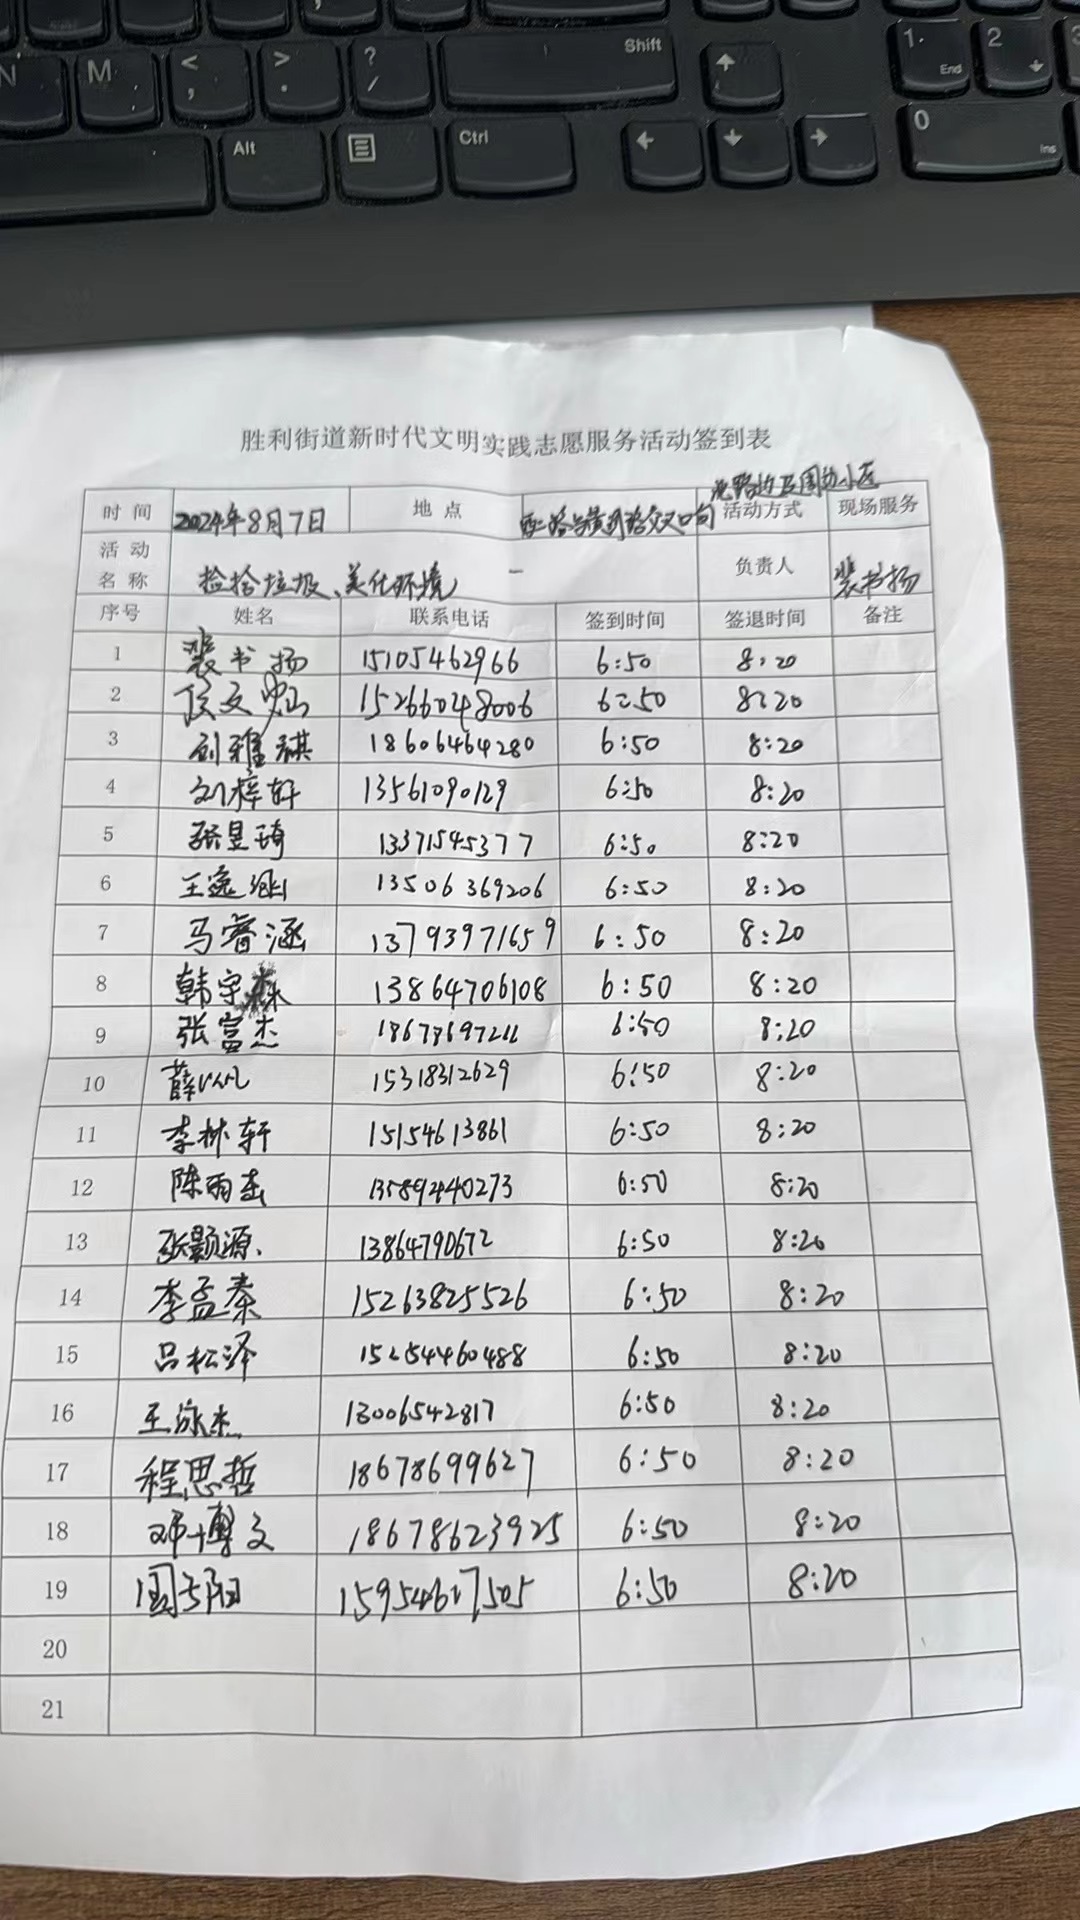 N M < , > . ? / Shift 1 End 2
Alt Ctrl 0 Ins
胜利街道新时代文明实践志愿服务活动签到表
时间 2024年8月7日 地点 交叉口向 活动方式 现场服务
活动名称 捡拾垃圾、美化环境 负责人 裴书扬
序号 姓名 联系电话 签到时间 签退时间 备注
1 裴书扬 15105462966 6:50 8:20
2 15266048006 6:50 8:20
3 刘雅祺 18606464280 6:50 8:20
4 刘梓轩 13561090129 6:50 8:20
5 张昱琦 13371545377 6:50 8:20
6 王逸涵 13506369206 6:50 8:20
7 马睿涵 13793971659 6:50 8:20
8 韩宇森 13864706108 6:50 8:20
9 张富杰 6:50 8:20
10 薛 15318312629 6:50 8:20
11 李林轩 15154613861 6:50 8:20
12 陈雨 13589440273 6:50 8:20
13 张颢源 13864790672 6:50 8:20
14 李孟秦 15263825526 6:50 8:20
15 吕松泽 15254460488 6:50 8:20
16 王泳杰 13006542817 6:50 8:20
17 程思哲 18678699627 6:50 8:20
18 邓博文 18678623925 6:50 8:20
19 6:50 8:20
20
21